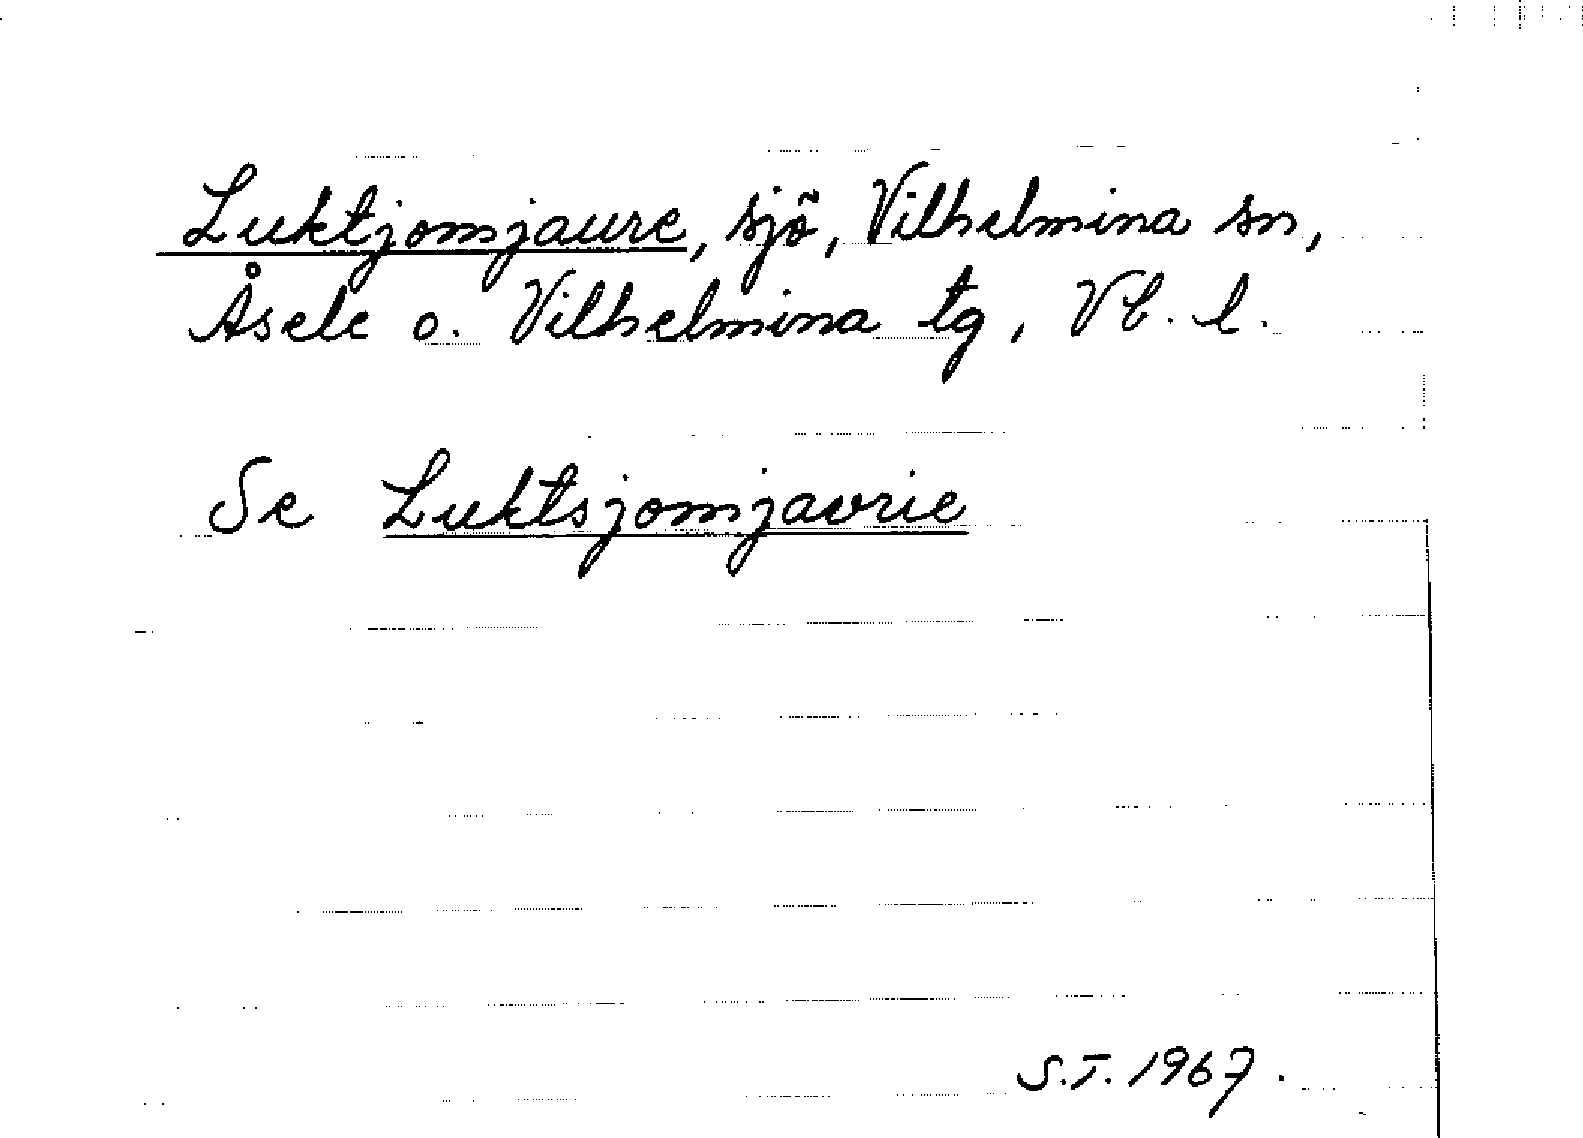 Luktjomjaure, sjö, Vilhelmina sn,
Åsele o. Vilhelmina tg, Vb. l.
Se Luktsjomjavrie
S.T. 1967.